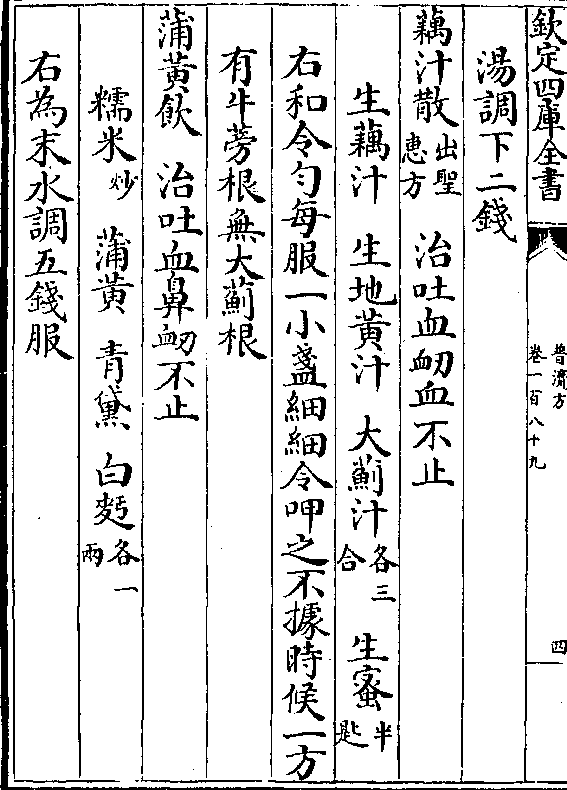 欽定四庫全書
普濟方
卷一百八十九
四
湯調下二錢
藕汁散出聖惠方　治吐血衂血不止
生藕汁　生地黄汁　大薊汁各三合　生蜜半匙
右和令勻每服一小盞細細令呷之不據時候一方
有牛蒡根無大薊根
蒲黄飲　治吐血鼻衂不止
糯米炒　蒲黄　青黛　白麫各一兩
右為末水調五錢服